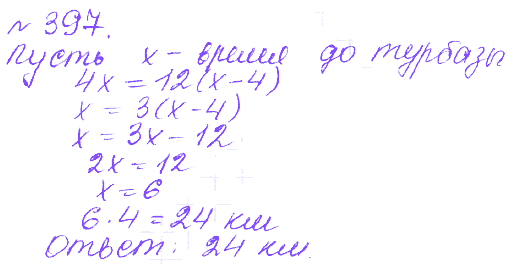 № 397.
Пусть x - время до турбазы
4x = 12(x-4)
x = 3(x-4)
x = 3x - 12
2x = 12
x = 6
6·4 = 24 км
Ответ: 24 км.